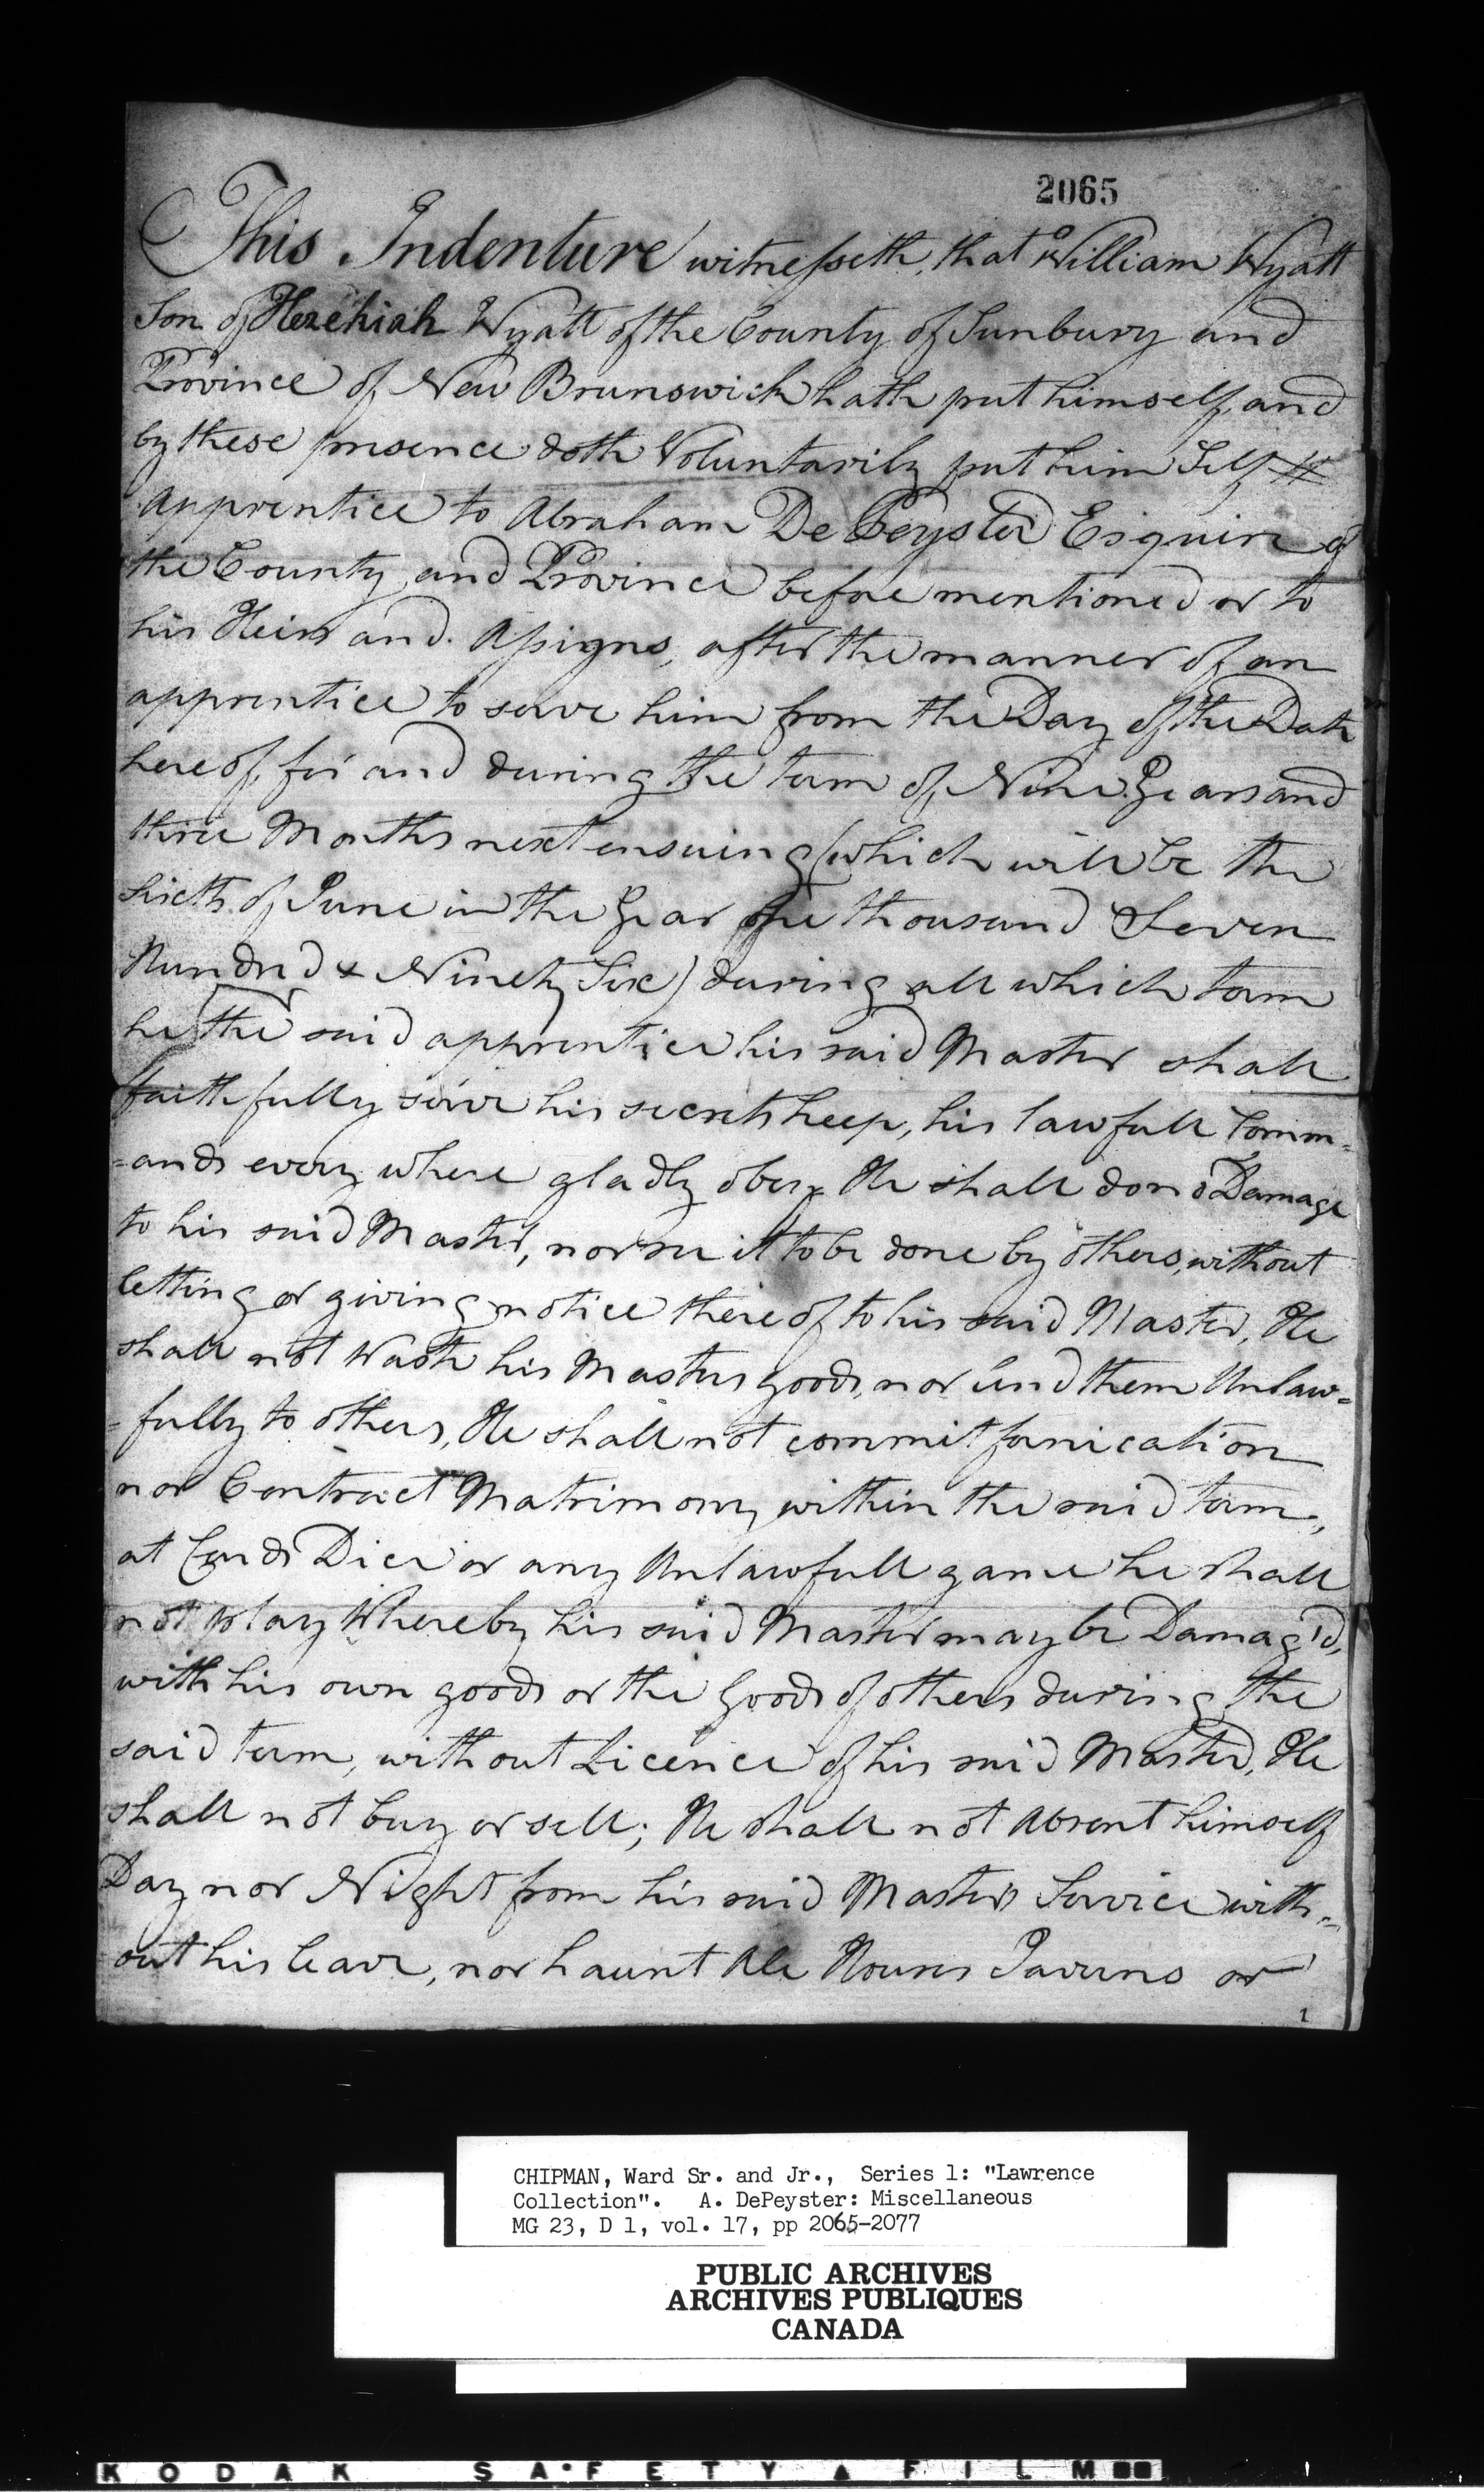 2065
This Indenture witnesseth, that William Wyatt
Son of Hezekiah Wyatt of the County of Sunbury and
Province of New Brunswick hath put himself, and
by these presence doth Voluntarily put him Self
apprentice to Abraham De Peyster Esquire of
the County and Province before mentioned or to
his Heirs and Assigns, after the manner of an
apprentice to serve him from the Day of the Date
here of, for and during the term of Nine Years and
three Months next ensuing (which will be the
Sixth of June in the Year One thousand Seven
Hundred & Ninety Six) during all which term
he the said apprentice his said Master shall
faithfully serve his secrets keep, his lawfull Comm=
=ands every where gladly obey. He shall do no Damage
to his said Master, nor see it to be done by others, without
letting or giving notice there of to his said Master, He
shall not Waste his Masters goods, nor lend them Unlaw=
=fully to others, He shall not commit fornication
nor Contract Matrimony within the said term,
at Cards Dice or any Unlawfull game he shall
not play Whereby his said Master may be Damag'd,
with his own goods or the Goods of others during the
said term, without Licence of his said Master, He
shall not buy or sell; He shall not Absent himself
Day nor Night from his said Masters Service with=
out his leave, nor haunt Ale Houses Taverns or
CHIPMAN, Ward Sr. and Jr., Series 1: "Lawrence
Collection". A. DePeyster: Miscellaneous
MG 23, D 1, vol. 17, pp 2065-2077
PUBLIC ARCHIVES
ARCHIVES PUBLIQUES
CANADA
KODAK SAFETY FILM